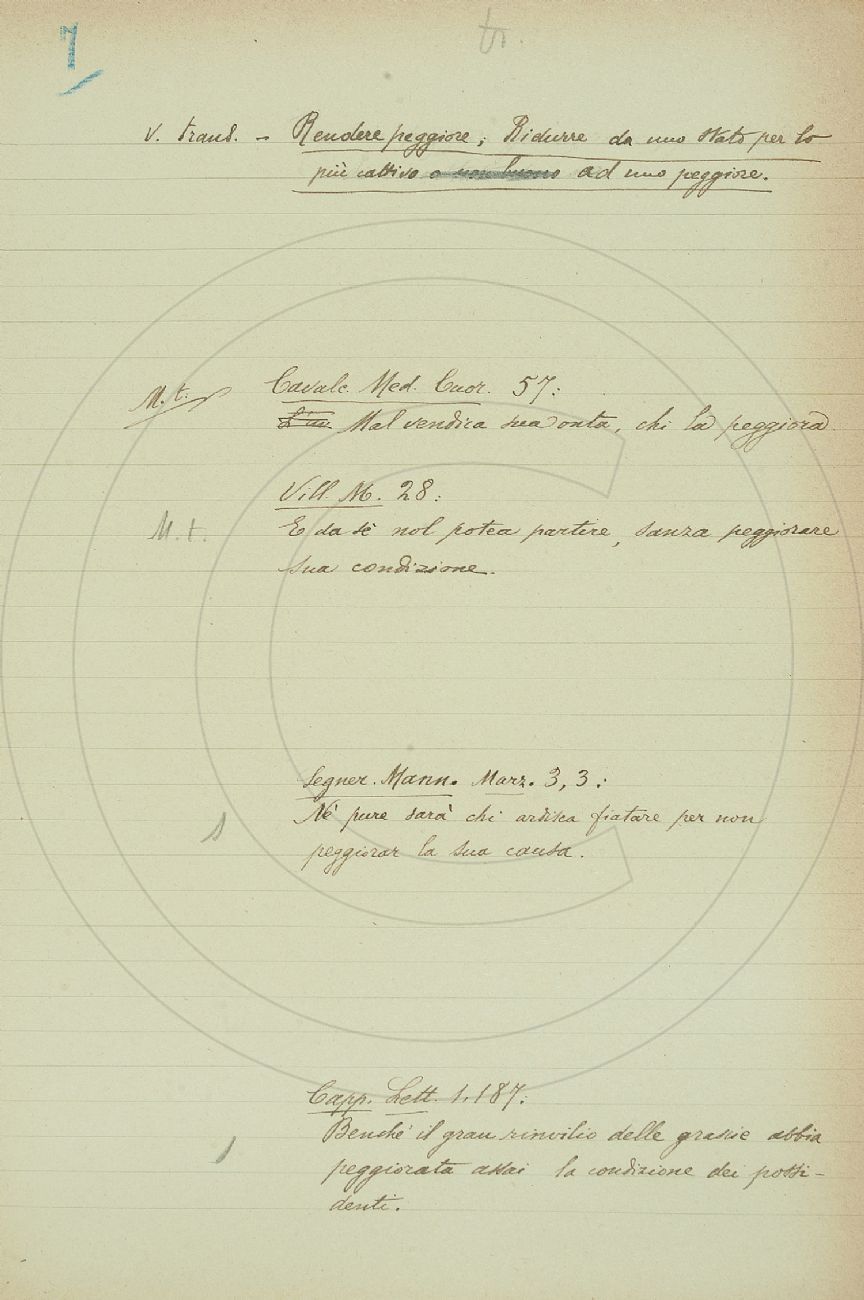 7
tr.
v. trans. - Rendere peggiore; Ridurre da uno stato per lo
più cattivo o non buono ad uno peggiore.
Cavalc. Med. Cuor. 57:
M. t.
Mal vendica sua onta, chi la peggiora
Vill. M. 28:
M. t.
E da sè nol potea partire, sanza peggiorare
sua condizione.
Segner. Mann. Marz. 3, 3:
Nè pure sarà chi ardisca fiatare per non
peggiorar la sua causa.
Capp. Lett. 1. 187:
Benchè il gran rinvilio delle grasce abbia
peggiorata assai la condizione dei possi-
denti.